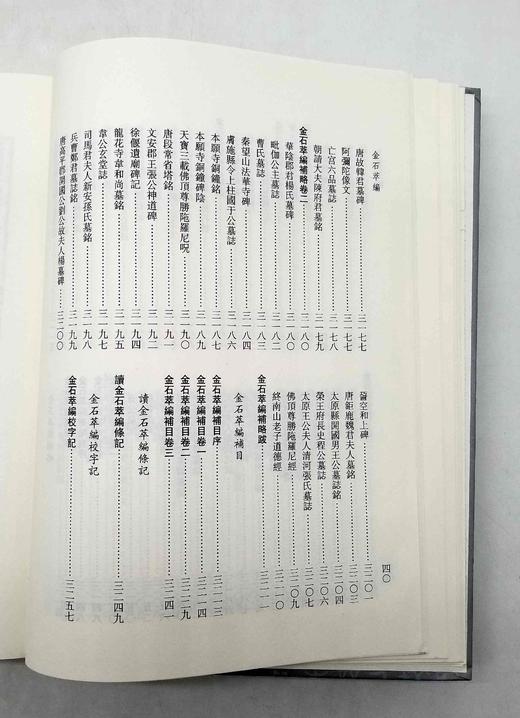 金石萃編
唐故韓君墓碑……三一七七
阿彌陀像文……三一七七
亡宮六品墓誌……三一七八
朝請大夫陳府君墓銘……三一七九
金石萃編補略卷二……三一八〇
華陰郡君楊氏墓碑……三一八〇
毗伽公主墓誌……三一八二
曹氏墓誌……三一八三
秦望山法華寺碑……三一八四
膚施縣令上柱國于公墓誌……三一八六
本願寺銅鐘銘……三一八七
本願寺銅鐘碑陰……三一八九
天寶三載佛頂尊勝陁羅尼呪……三一九〇
唐段常省塔銘……三一九一
文安郡王張公神道碑……三一九二
徐偃遺廟碑記……三一九四
龍花寺韋和尚墓銘……三一九五
韋公玄堂誌……三一九七
司馬君夫人新安孫氏墓銘……三一九八
兵曹鄭君墓誌銘……三一九九
唐高平郡開國公劉公故夫人楊墓碑……三二〇〇
四〇
空和上碑……三二〇一
唐鉅鹿魏君夫人墓銘……三二〇三
太原縣開國男王公墓誌銘……三二〇四
榮王府長史程公墓誌……三二〇六
太原王公夫人清河張氏墓誌……三二〇七
佛頂尊勝陁羅尼經……三二〇九
終南山老子道德經……三二一〇
金石萃編補略跋……三二一一
金石萃編補目
金石萃編補目序……三二一三
金石萃編補目卷一……三二一五
金石萃編補目卷二……三二二九
金石萃編補目卷三……三二四一
讀金石萃編條記
讀金石萃編條記……三二四九
金石萃編校字記
金石萃編校字記……三二五七